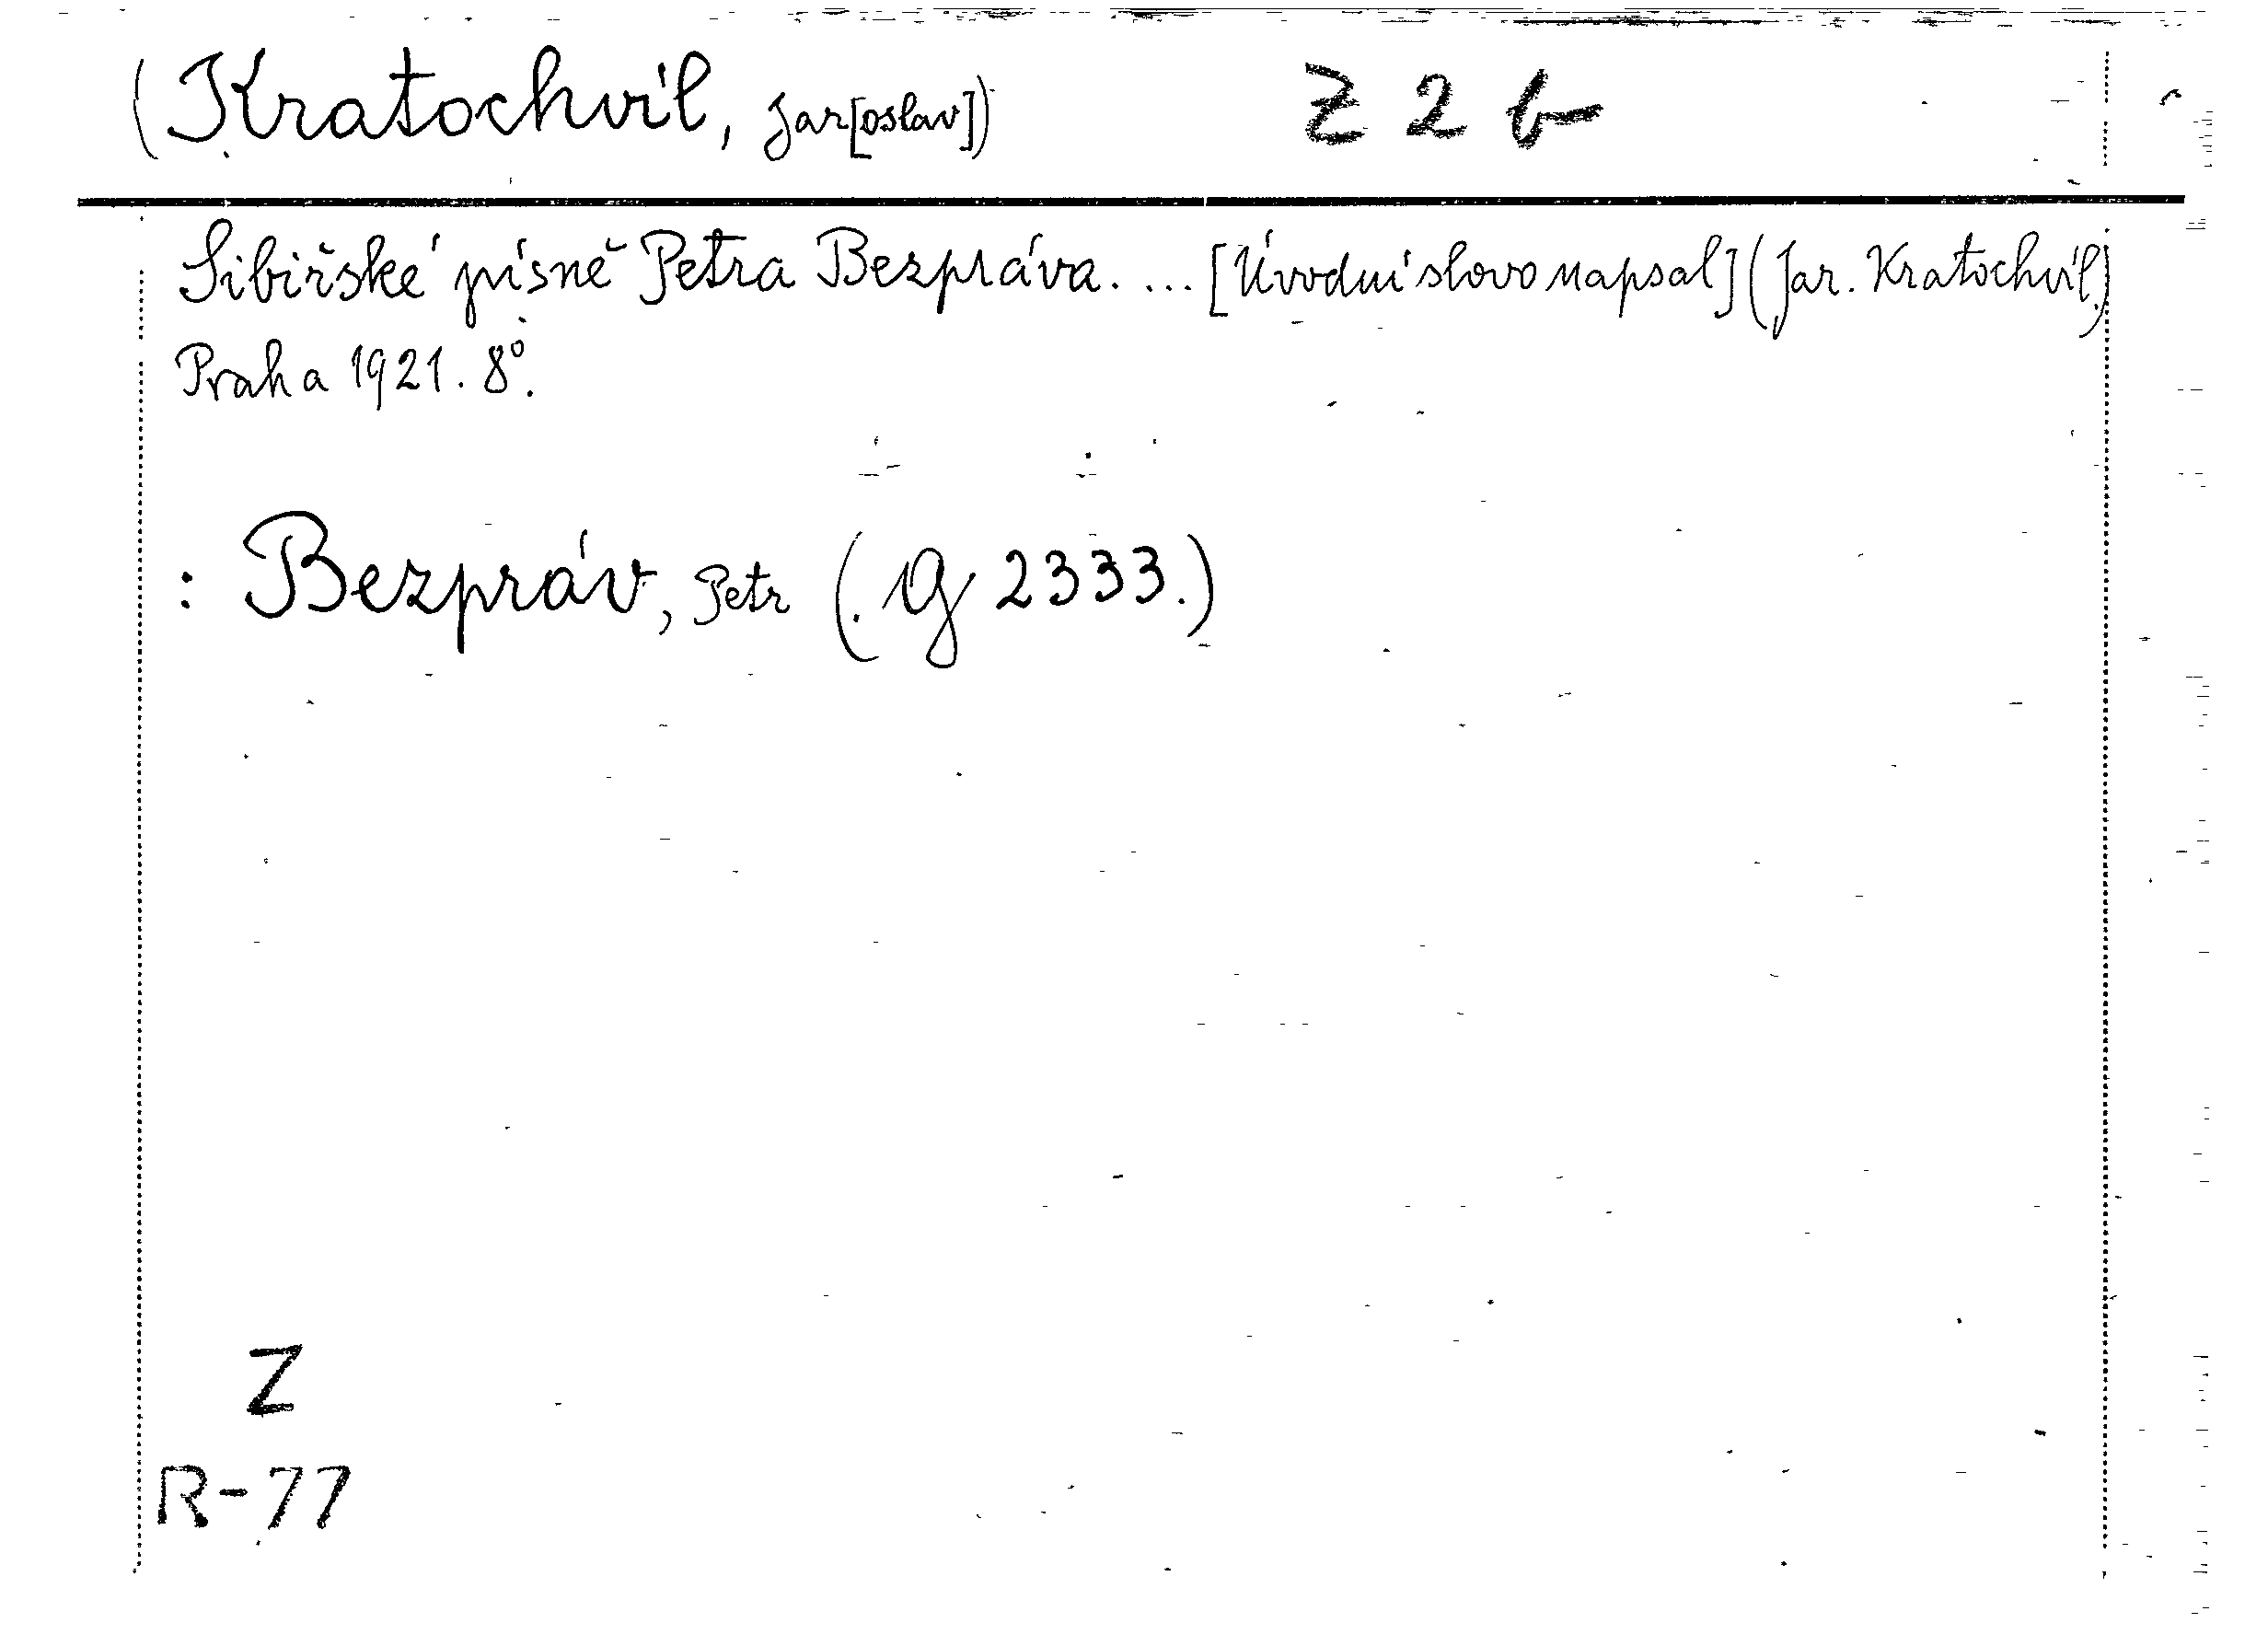 (Kratochvíl, Jar[oslav]) Z 2 b
Sibiřské písně Petra Bezpráva. ... [Úvodní slovo napsal] (Jar. Kratochvíl.)
Praha 1921. 8°.
: Bezpráv, Petr (. G 2333.)
Z
R-77